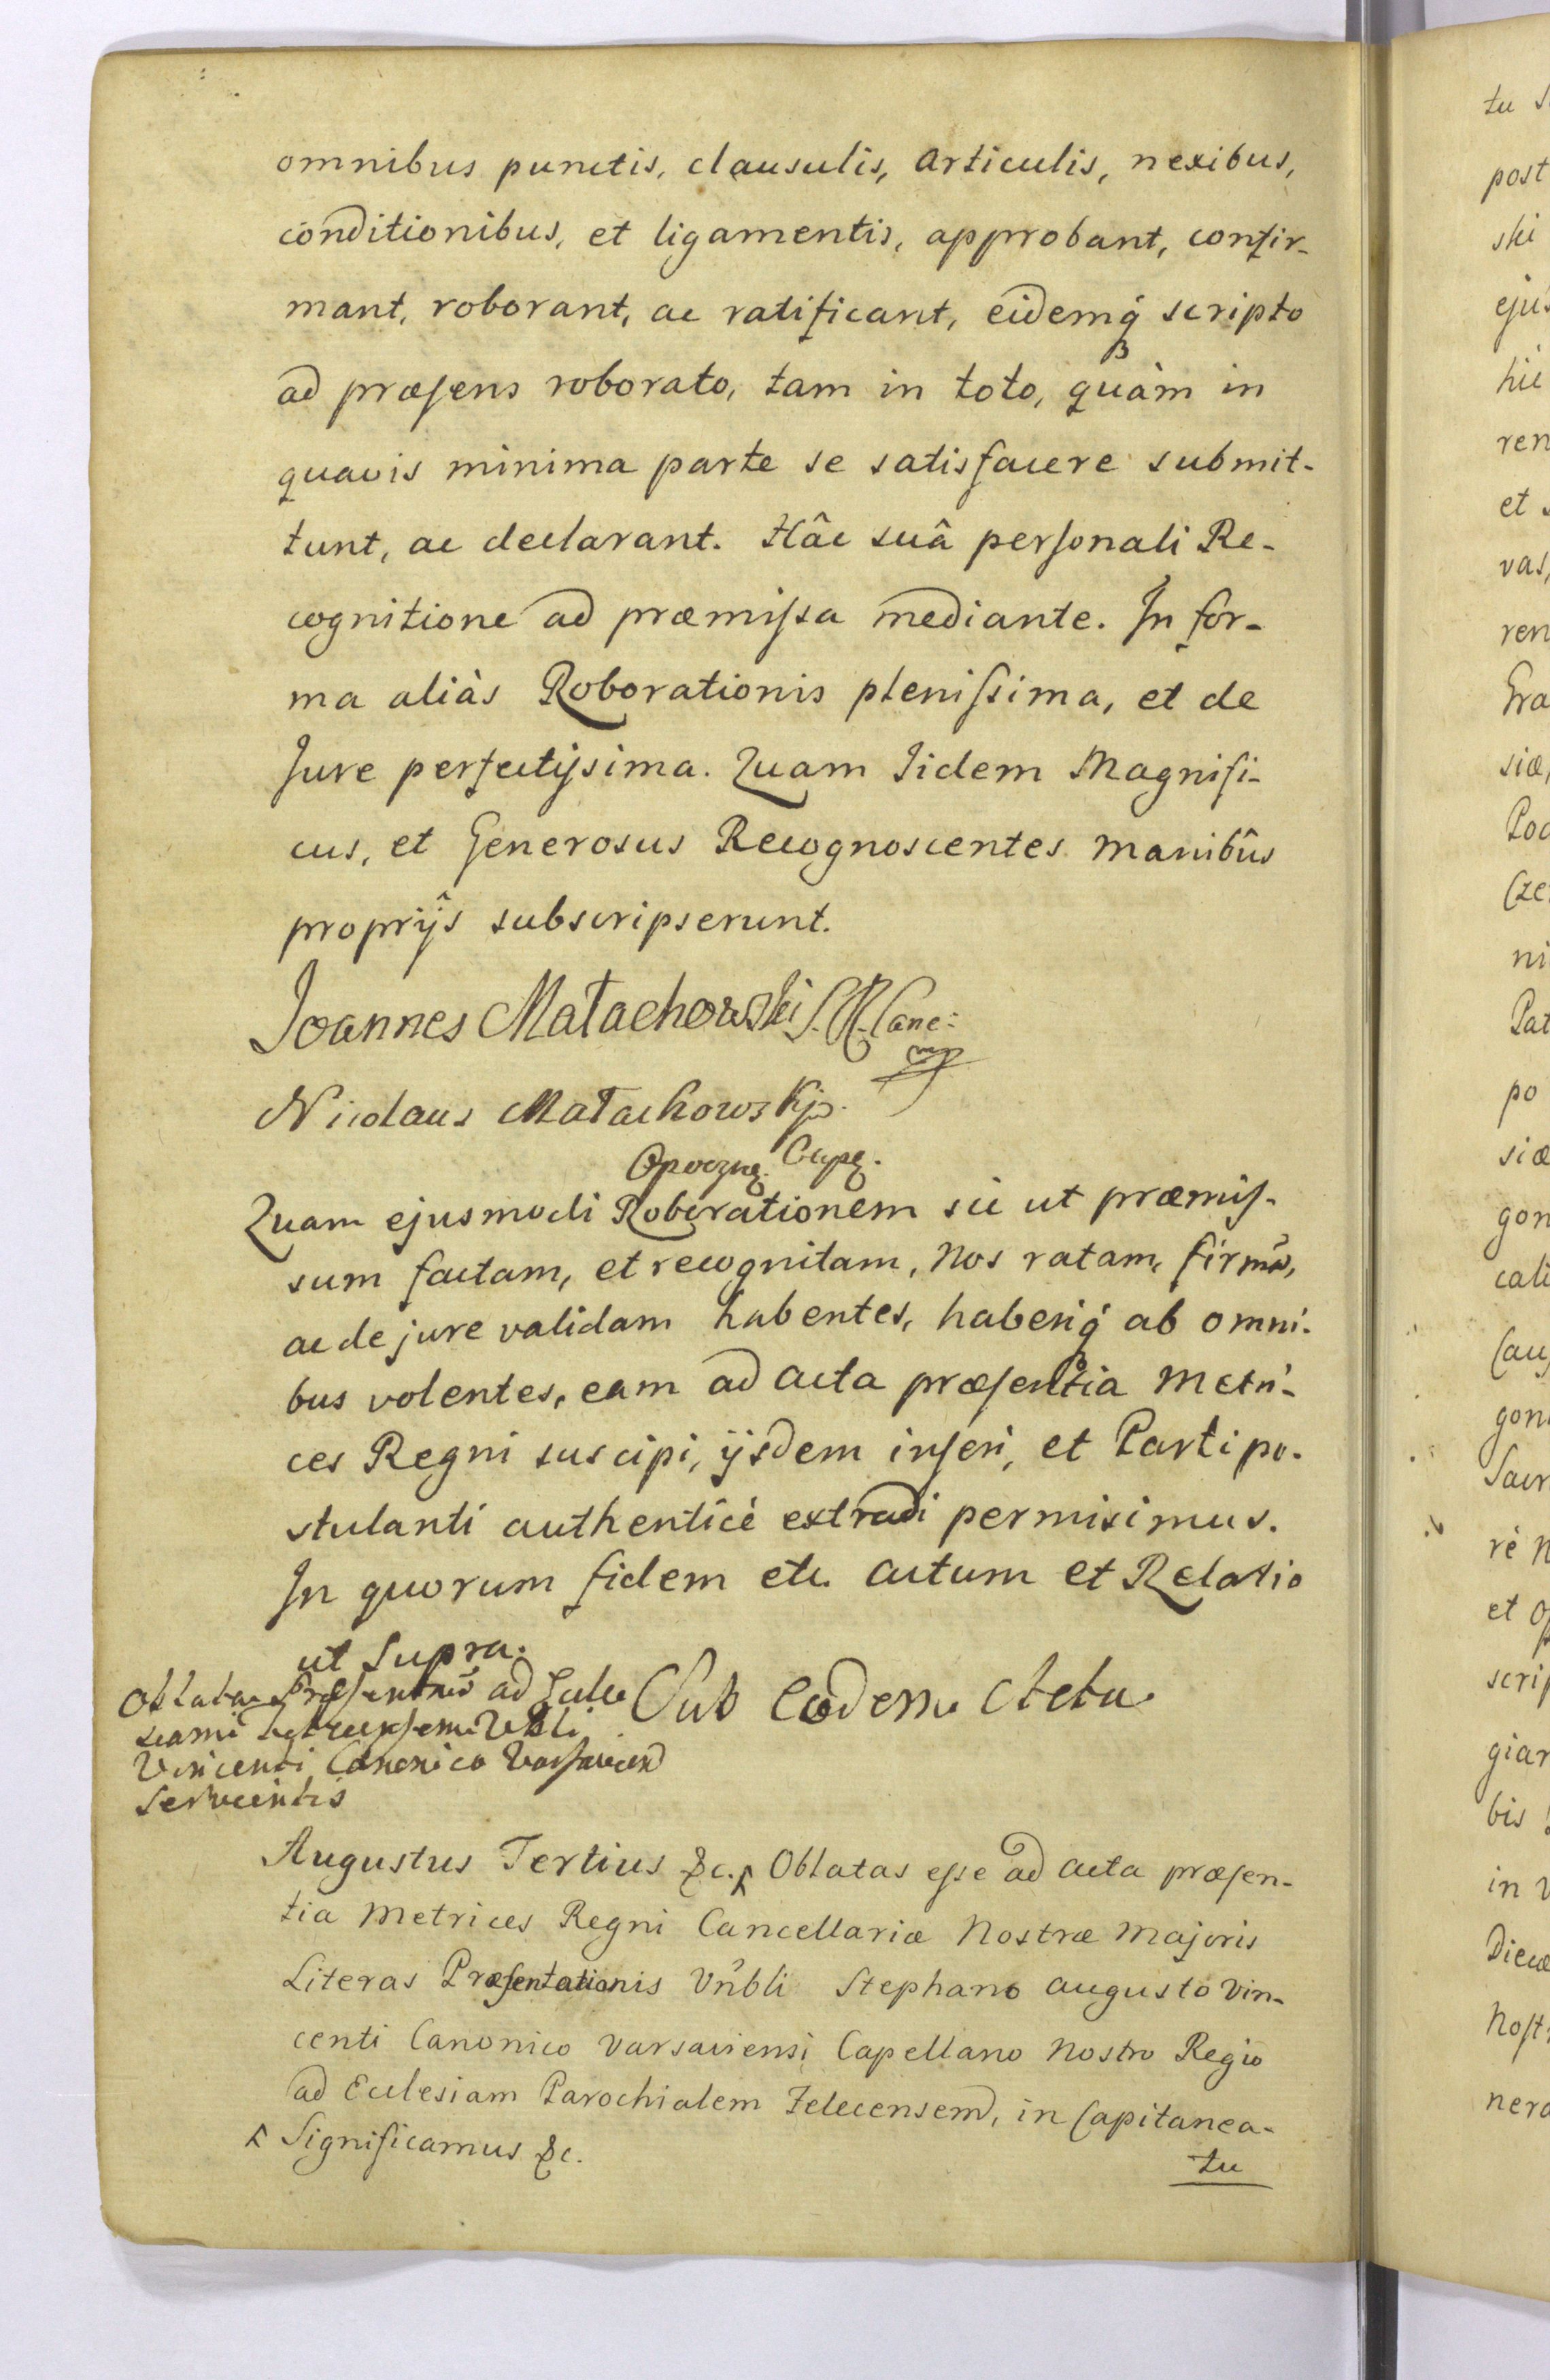 omnibus punctis, clausulis, articulis, nexibus,
conditionibus, et ligamentis, approbant, confir-
mant, roborant, ac ratificant, eidemq́ scripto
ad præsens roborato, tam in toto, quàm in
quavis minima parte se satisfacere submit-
tunt, ac declarant. Hâc suâ personali Re-
cognitione ad præmissa mediante. In for-
ma aliàs Roborationis plenissima, et de
Jure perfectissima. Quam Iidem Magnifi-
cus, et Generosus Recognoscentes manibûs
proprijs subscripserunt.
Joannes Małachowski S. R. Canc: mp
Nicolaus Małachowskj
Quam ejusmodi Roborationem sic ut præmis-
sum factam, et recognitam, Nos ratam, firmã,
ac de jure validam habentes, haberiq́ ab omni-
bus volentes, eam ad acta præsentia Metri-
ces Regni suscipi, ijsdem inseri, et Parti po-
stulanti authenticè extradi permisimus.
In quorum fidem etc. Actum et Relatio
ut Supra.
Sub Eodem Actu
Vincenti Canonico
servientis
Augustus Tertius &c. Oblatas esse ad acta præsen-
tia Metrices Regni Cancellariæ Nostræ Majoris
Literas Præsentationis Vnbli Stephano Augusto Vin-
centi Canonico Varsaviensi Capellano Nostro Regio
ad Ecclesiam Parochialem Zelecensem, in Capitanea-
Significamus &c.
tu